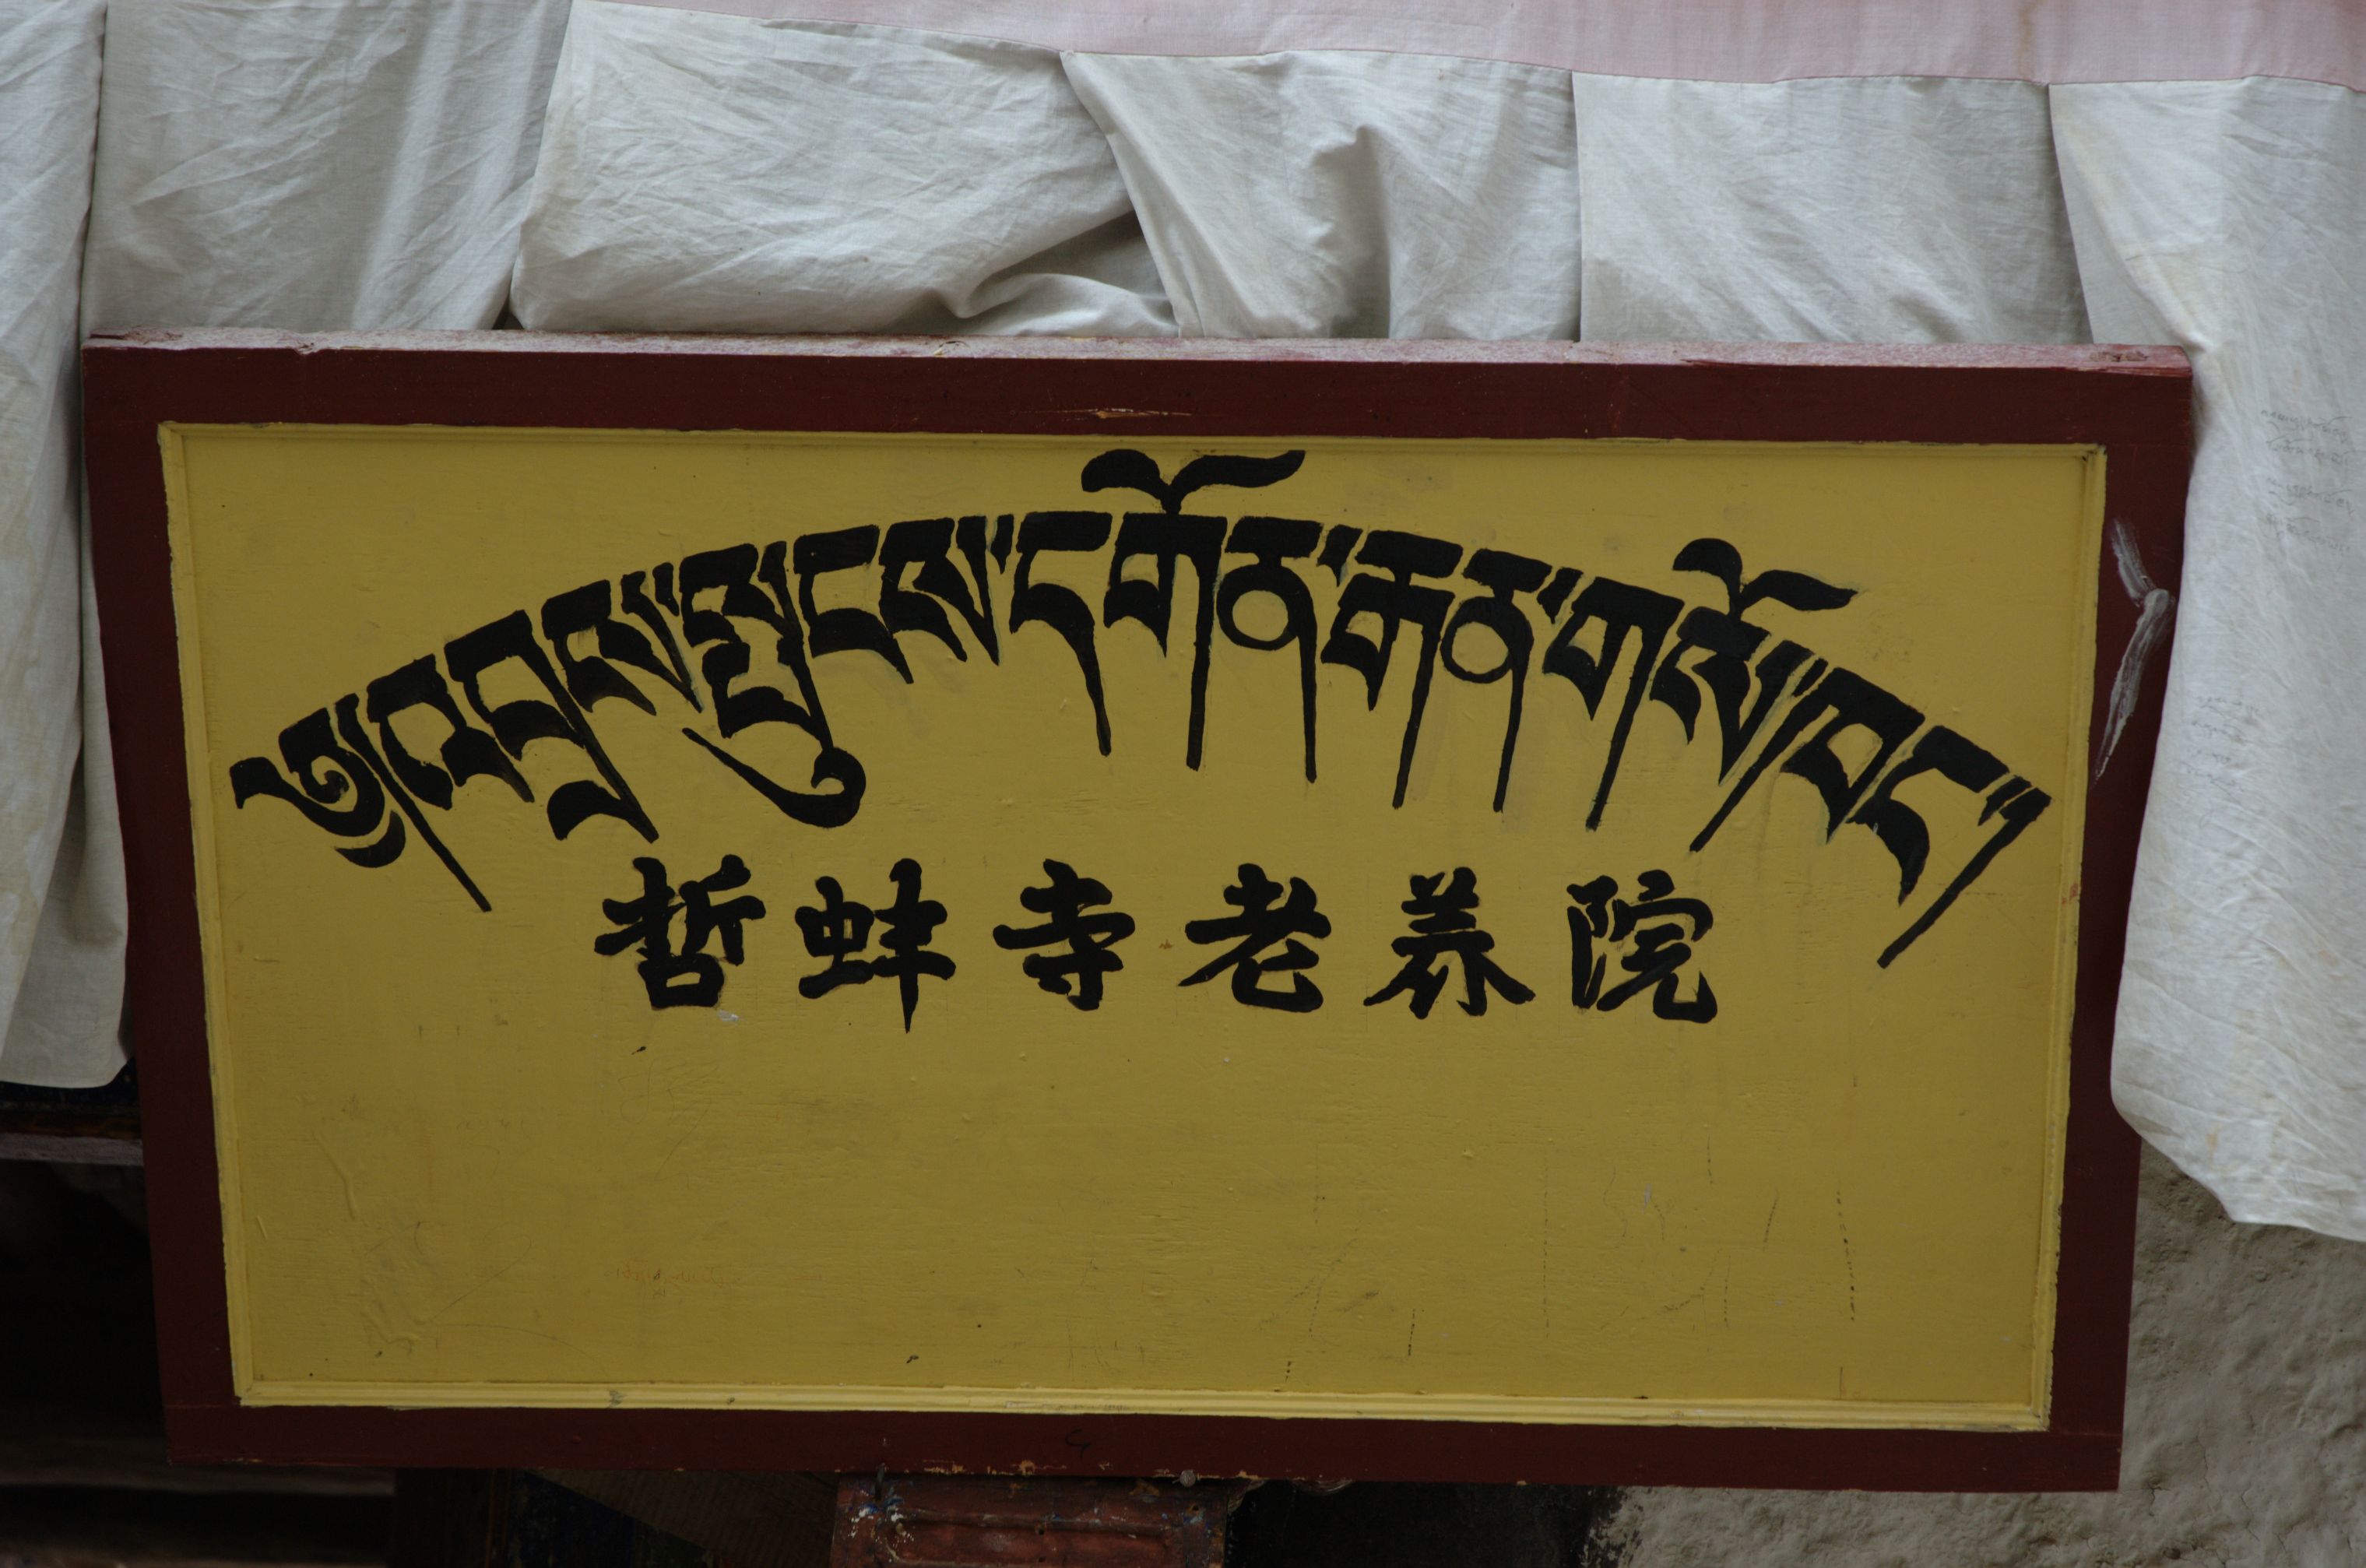 ༄། འབྲས་སྤུངས་དགོན་རྒན་གསོ་ཁང་།
哲蚌寺老养院